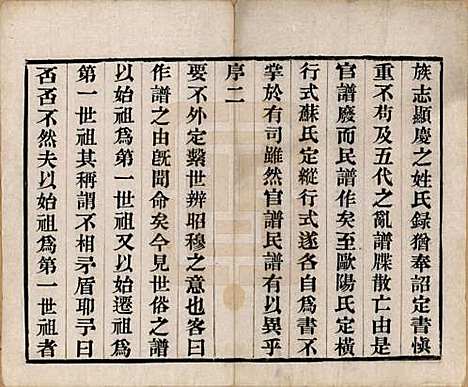 族志顯慶之姓氏録猶奉詔定書愼
重不苟及五代之亂譜牒散亡由是
官譜廢而民譜作矣至歐陽氏定橫
行式蘇氏定縱行式遂各自爲書不
掌於有司雖然官譜民譜有以異乎
序二
要不外定繫世辨昭穆之意也客曰
作譜之由旣聞命矣今見世俗之譜
以始祖爲第一世祖又以始遷祖爲
第一世祖其稱謂不相矛盾耶予曰
否否不然夫以始祖爲第一世祖者